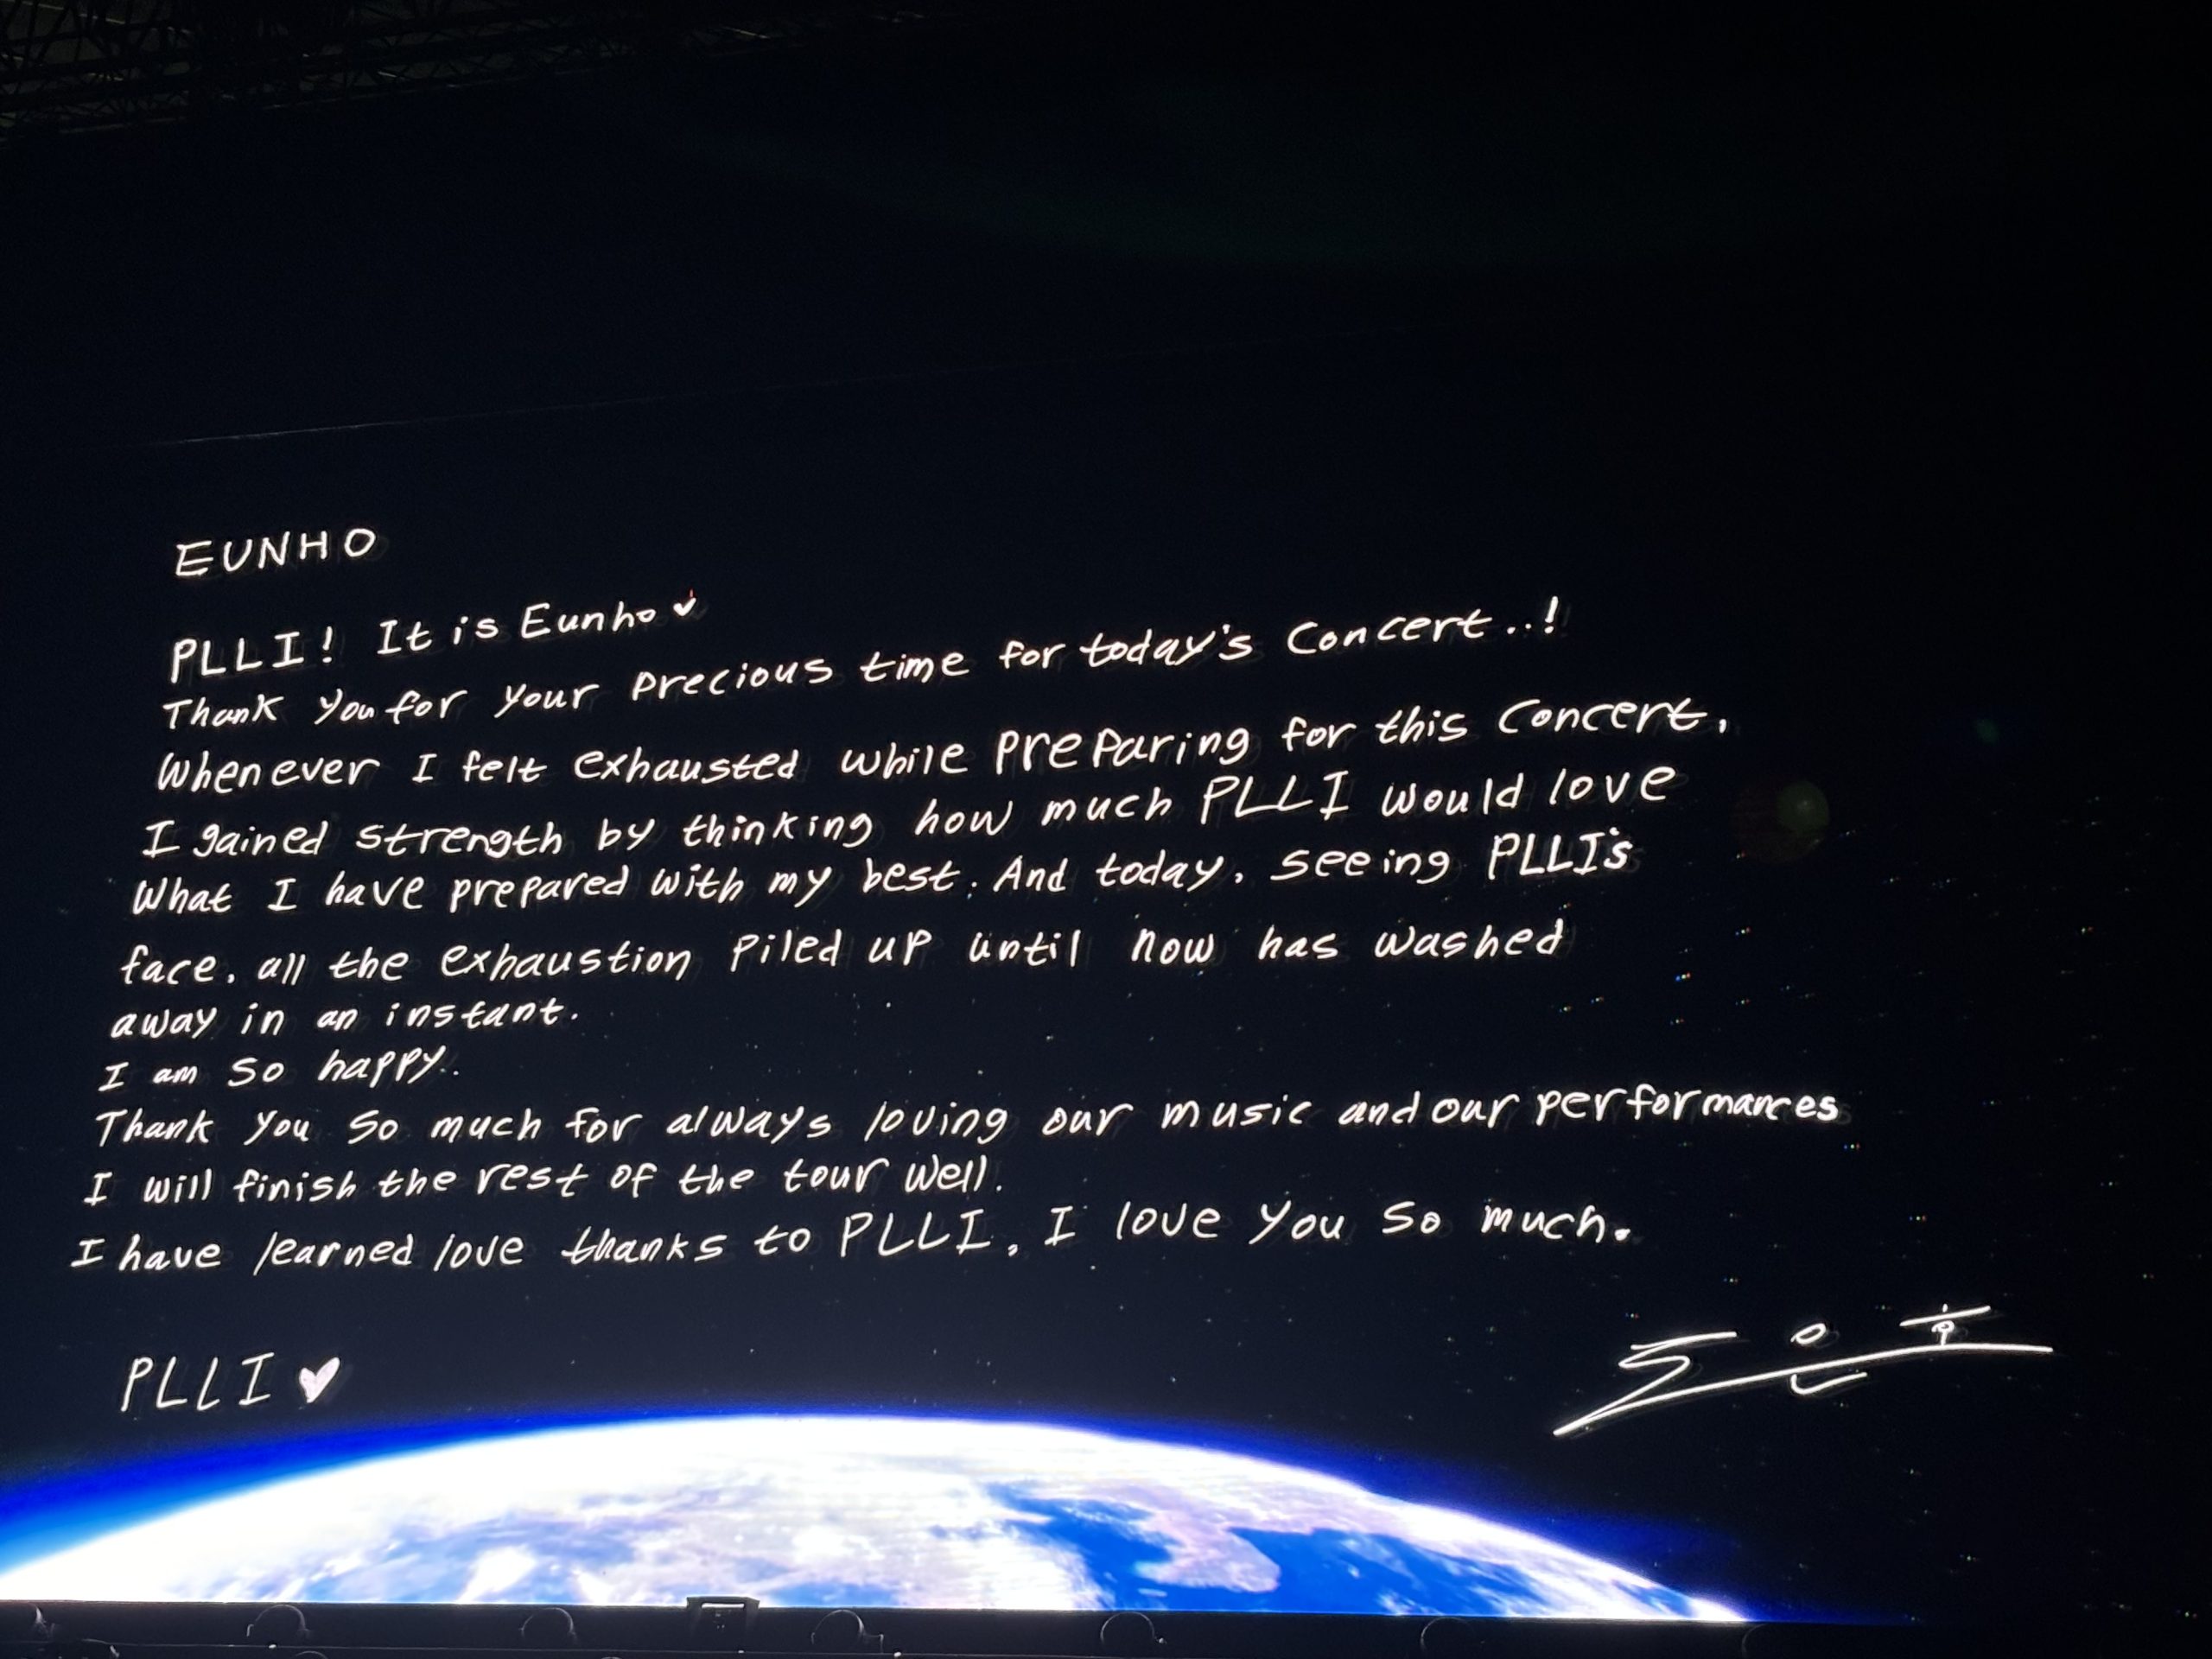 EUNHO
PLLI! It is Eunho
Thank you for your precious time for today's Concert..!
Whenever I felt exhausted while preparing for this Concert,
I gained strength by thinking how much PLLI would love
What I have prepared with my best. And today, seeing PLLI's
face, all the exhaustion piled up until now has washed
away in an instant.
I am so happy..
Thank you so much for always loving our music and our performances
I will finish the rest of the tour well.
I have learned love thanks to PLLI, I love you so much.
PLLI ♥
도은호